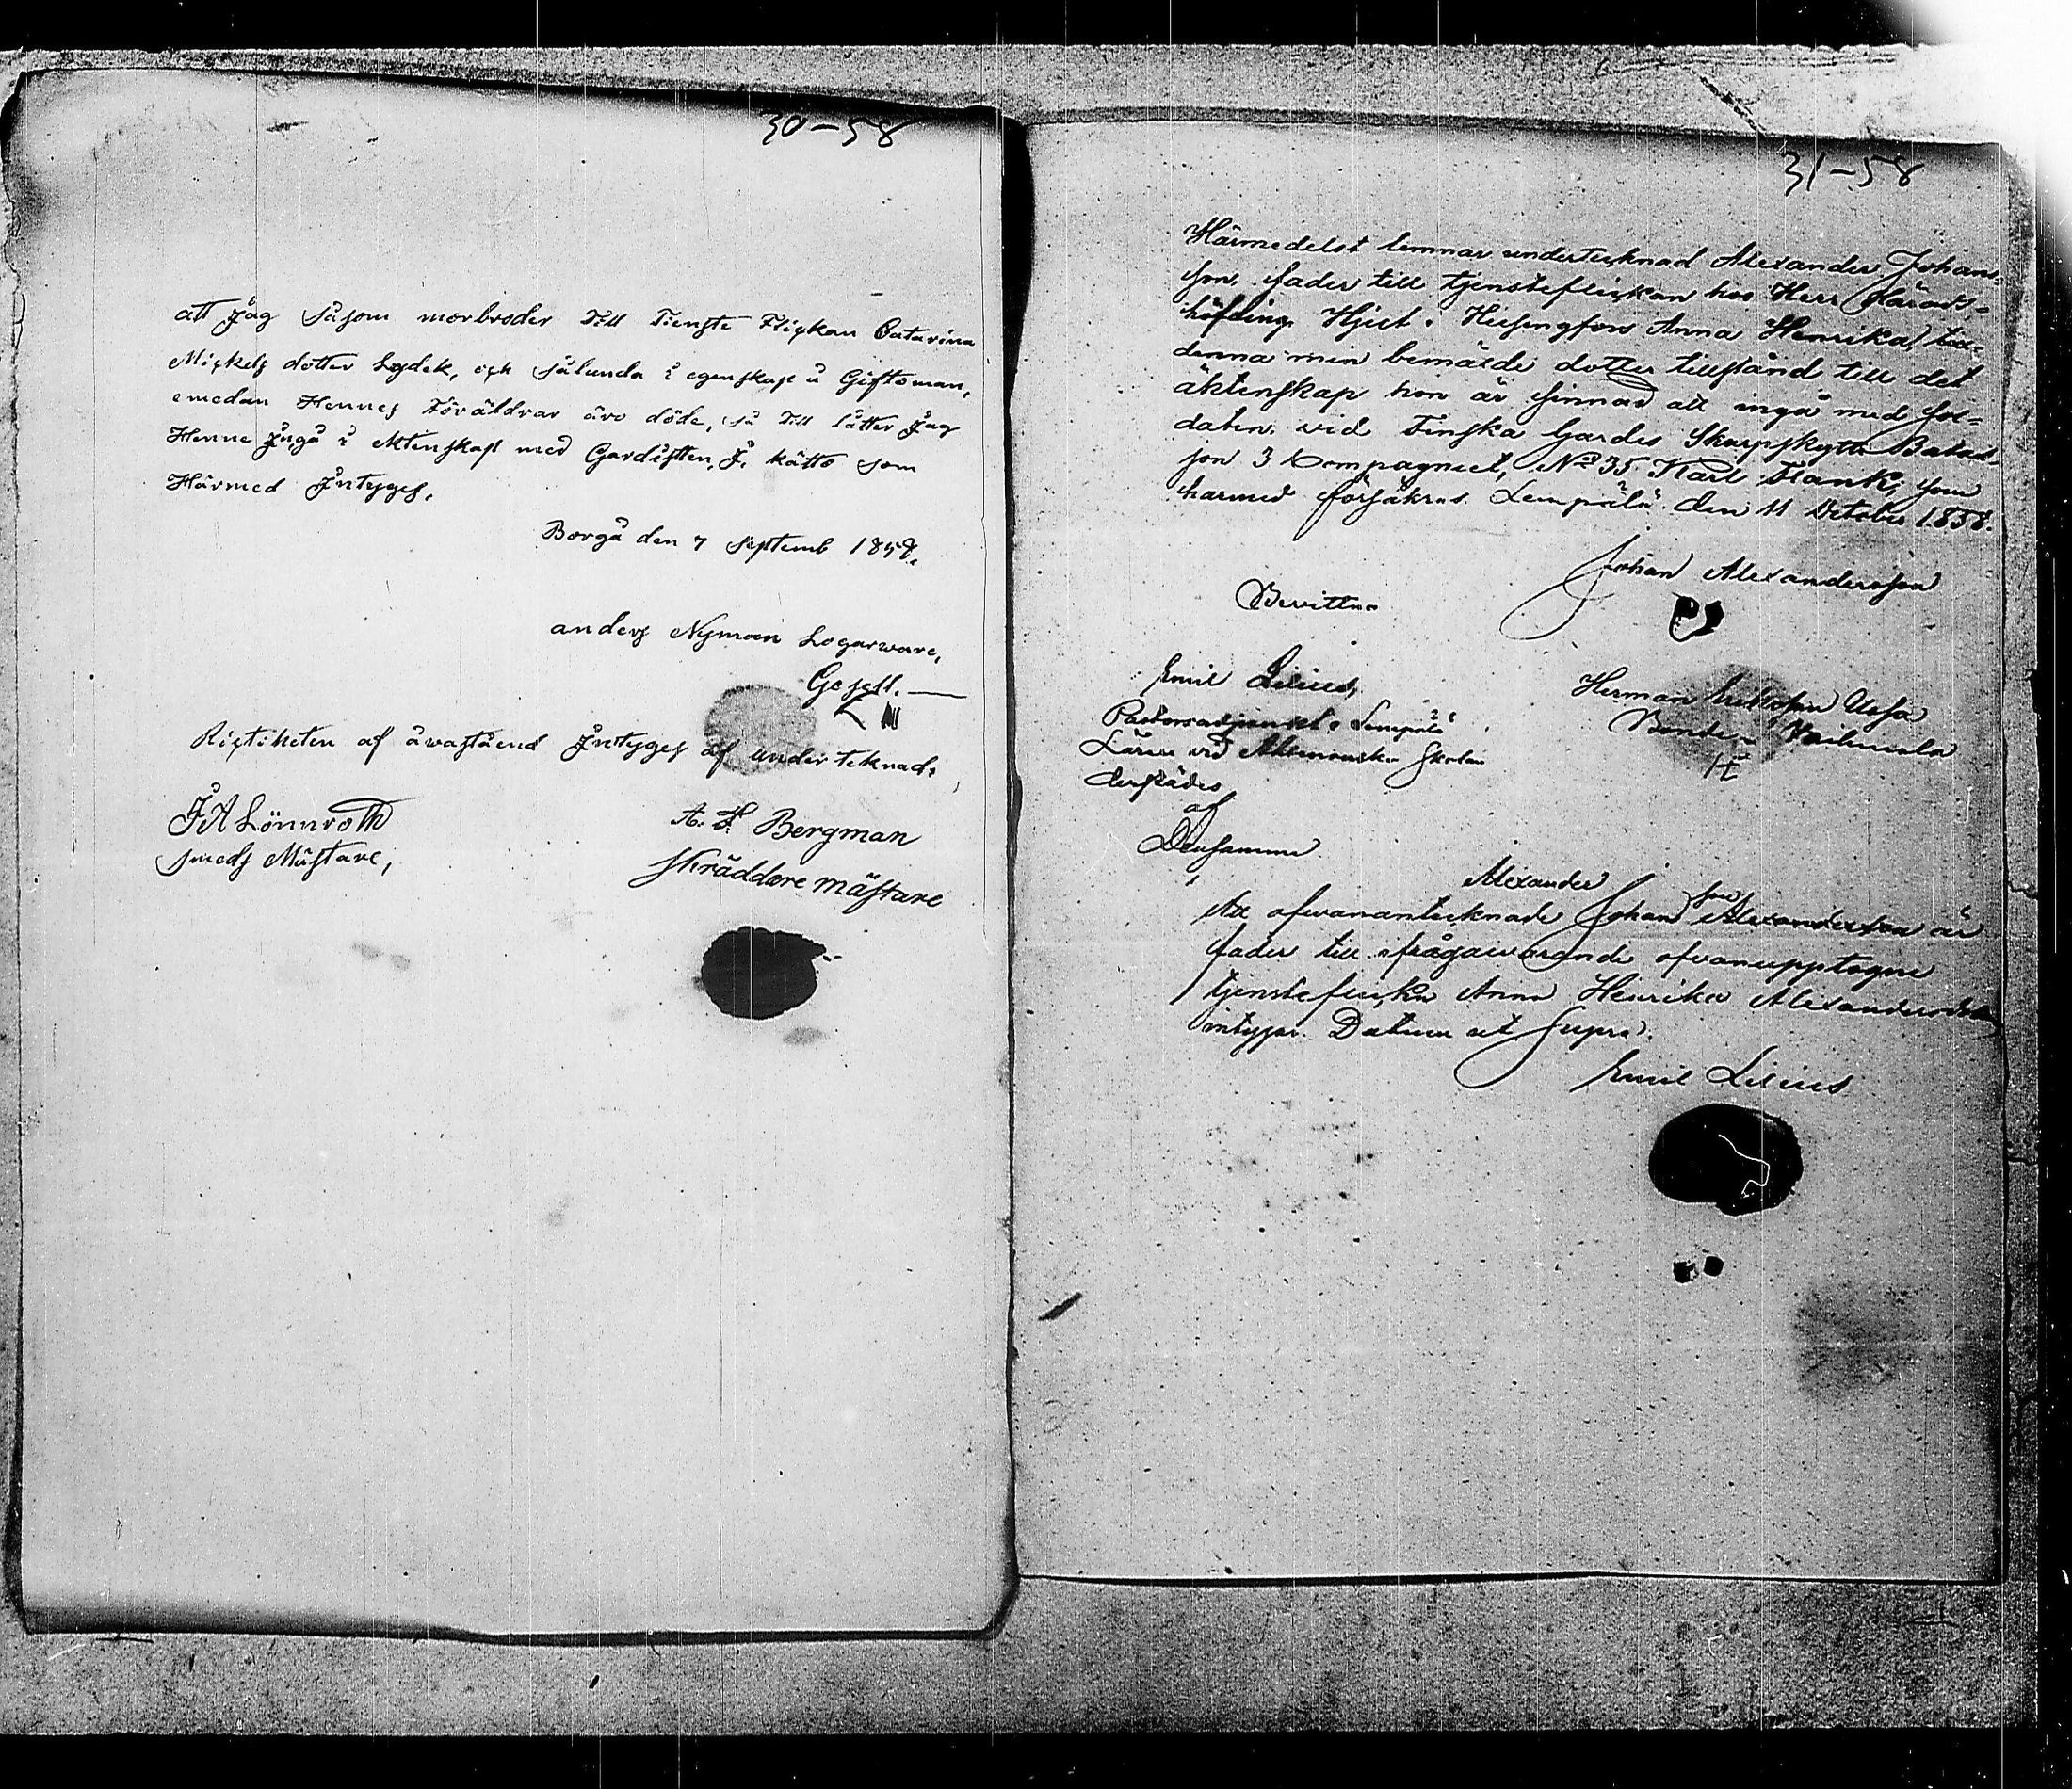 30-58
att Jag Såsom morbroder Till Tienste Flickan Catarina
Mickels dotter Lydek, och Sålunda i egenskap u Giftoman,
emedan Hennes Föräldrar äro döde, så Till låtter Jag
Henne Jngå i Aktenskap med Gardisten, J. kätto som
Härmed Jntyges.
Borgå den 7 Septemb 1858.
anders Nyman Logarware,
Gesell.
Rictiheten af åwastående Jntyges af under teknad:
J A Lönnroth
smeds Mästare,
A. F. Bergman
Skräddare mästare
31-58
Härmedelst lemnar undertecknad Alexander Johans-
son, fader till tjensteflickan hos Herr Härads-
höfding Hjelt i Helsingfors Anna Henrika,
denna min bemälde dotter tillstånd till det
äktenskap hon är sinnad att ingå med sol-
daten vid Finska Gardes Skarpskytte Batal-
jon 3 Compagniet, No 35 Karl Frank, som
harmed försäkras. Lempälä den 11 October 1858.
Johan Alexandersson
Bevittna
Emil Lilius,
Pastorsadjunct i Lempälä
Lärare vid Ahlmanska Skolan
derstädes
Herman Eriksson Uksa
Bonde Vaihmala
af
Densamme
Alexander
Att ofvanantecknade Johansson Alexandersson är
fader till ifrågavarande ofvanupptagne
tjensteflicka Anna Henrika Alexandersdotter
intygar. Datum ut Supra.
Emil Lilius